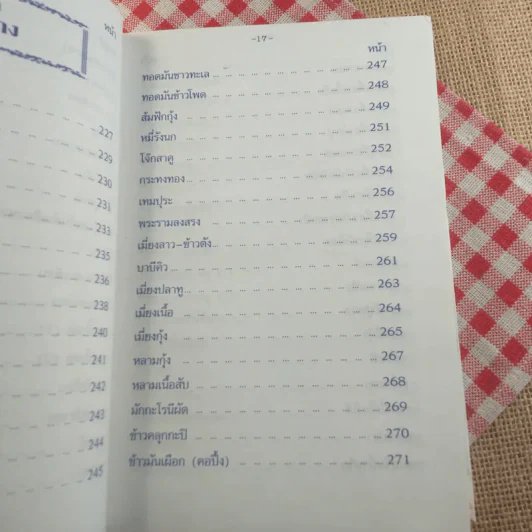 ง
หน้า
227
229
230
231
233
235
236
238
240
241
242
243
244
245
-17-
หน้า
ทอดมันชาวทะเล 247
ทอดมันข้าวโพด 248
ส้มฟักกุ้ง 249
หมี่รังนก 251
โจ๊กสาคู 252
กระทงทอง 254
เทมปุระ 256
พระรามลงสรง 257
เมี่ยงลาว-ข้าวตัง 259
บาบีคิว 261
เมี่ยงปลาทู 263
เมี่ยงเนื้อ 264
เมี่ยงกุ้ง 265
หลามกุ้ง 267
หลามเนื้อสับ 268
มักกะโรนีผัด 269
ข้าวคลุกกะปิ 270
ข้าวมันเผือก (คอปึ้ง) 271